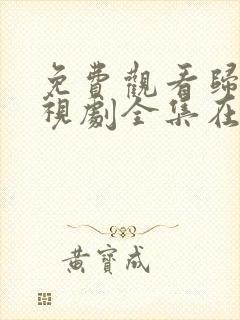 免費觀看歸
視劇全集在
黃寶成